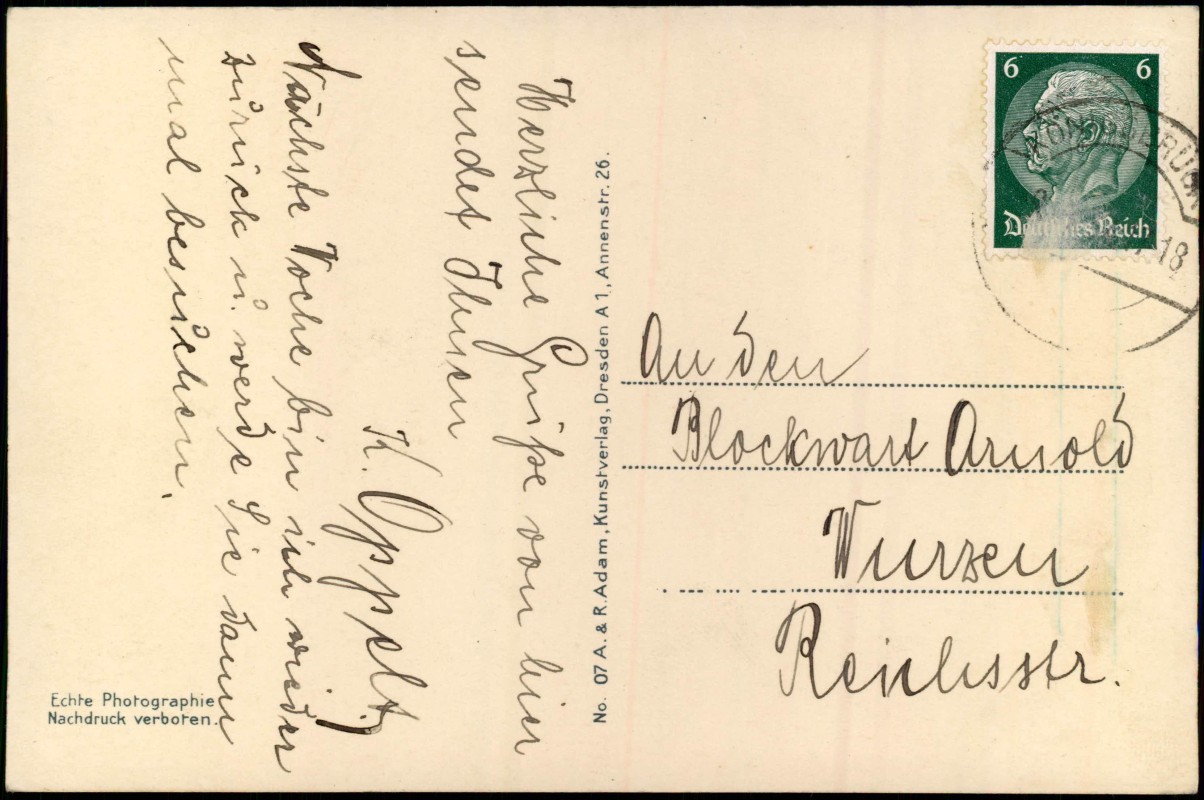 Herzliche Grüße von hier
sendet Ihnen
K. Oppelt.
Nächste Woche bin ich wieder
zurück u. werde Sie dann
mal besuchen.
Echte Photographie
Nachdruck verboten.
No. 07 A. & R. Adam, Kunstverlag, Dresden A 1, Annenstr. 26.
6 6
Deutsches Reich
18
An den
Blockwart Arnold
Wurzen
Reichsstr.